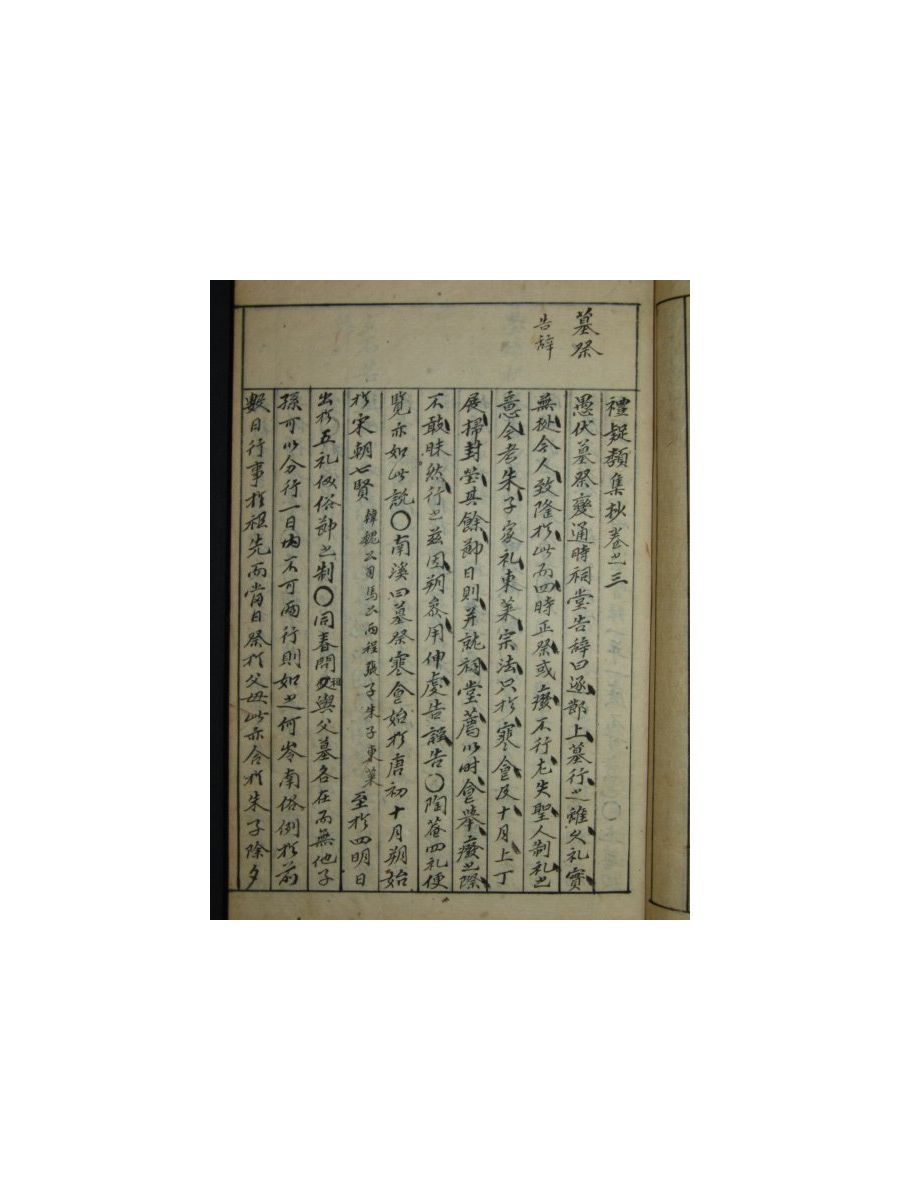 墓祭
告辞
禮疑類集抄卷之三
愚伏墓祭變通時祠堂告辞曰逐節上墓行之雖久礼實
無据今人致隆於此而四時正祭或癈不行尤失聖人制礼之
意今考朱子家礼東萊宗法只於寒食及十月上丁
展掃封塋其餘節日則并就祠堂薦以时食舉癈之際
不敢昧然行之玆因朔参用伸虔告謹告〇陶菴四礼便
覽亦如此説〇南溪曰墓祭寒食始於唐初十月朔始
於宋朝七賢韓魏公司馬公両程張子朱子東萊至於四明日
出於五礼仪俗節之制〇同春問祖父與父墓各在而無他子
孫可以分行一日内不可両行則如之何岺南俗例於前
數日行事於祖先而當日祭於父母此亦合於朱子除夕